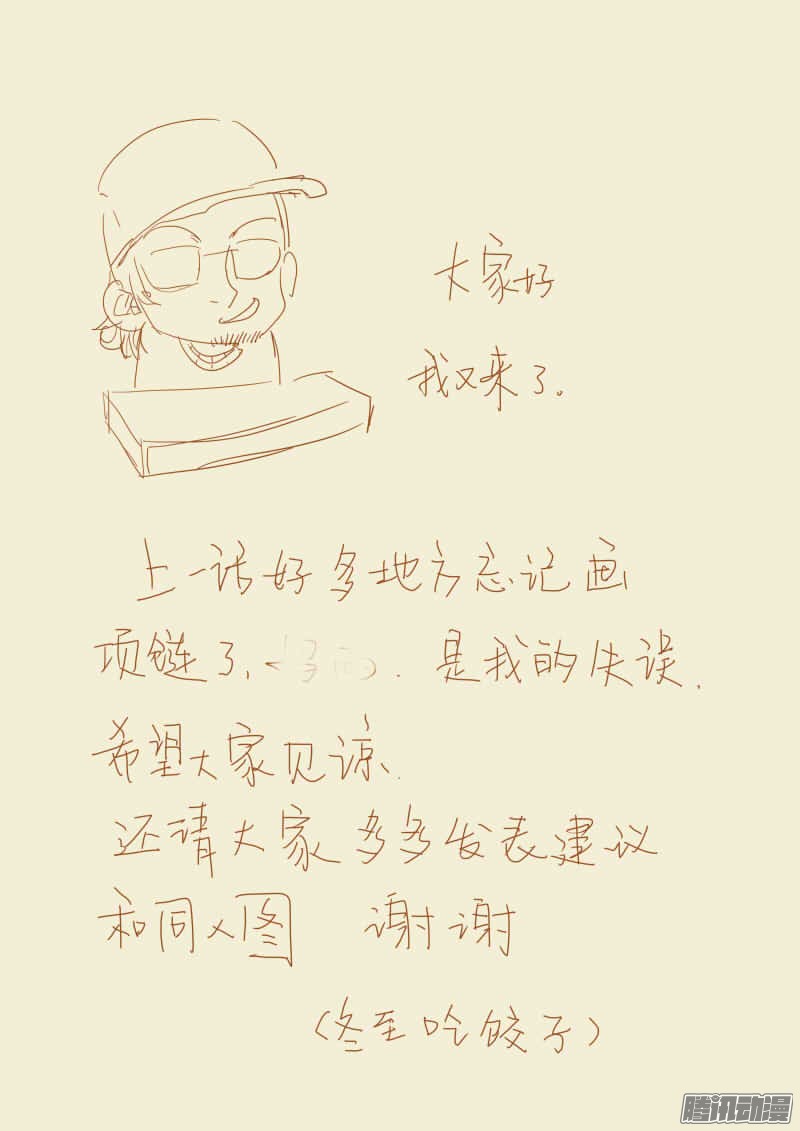 大家好
我又来了。
上一话好多地方忘记画
项链了, 是我的失误.
希望大家见谅.
还请大家多多发表建议
和同人图 谢谢
(冬至吃饺子)
腾讯动漫